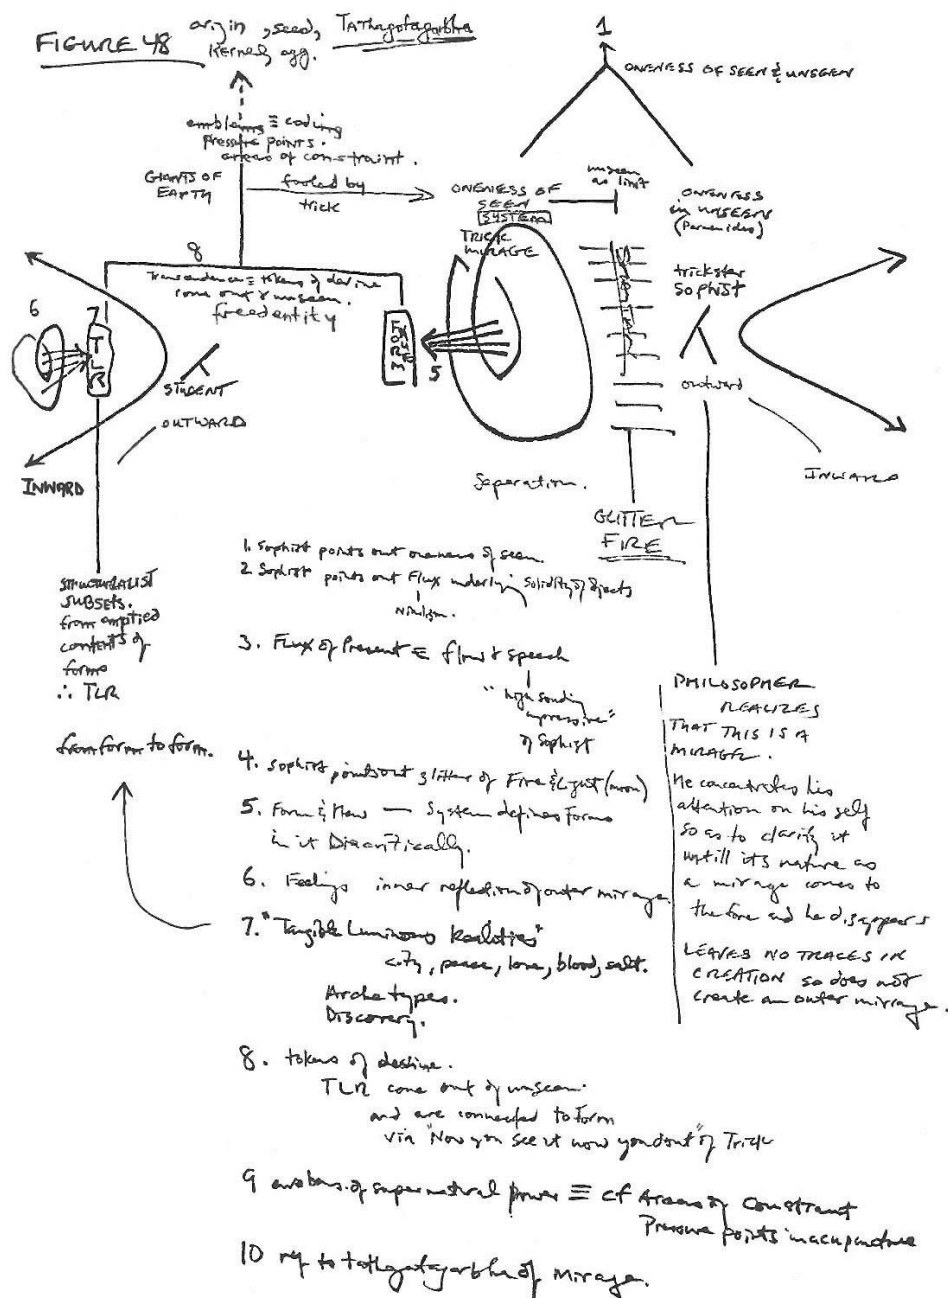 FIGURE 48
origin, seed, TAThagatagarbha
Kernel, egg.
1
ONENESS OF SEEN & UNSEEN
emblems ≡ coding
Pressure points.
areas of constraint.
GIANTS OF
EARTH
fooled by
trick
ONENESS OF
SEEN
SYSTEM
TRICK
MIRAGE
unseen
as limit
ONENESS
in UNSEEN
(Parmenides)
8
Transcendences ≡ tokens of desire
come out of unseen.
trickster
Sophist
6
7
TLR
5
STUDENT
OUTWARD
outward
INWARD
INWARD
Seperation.
GLITTER
FIRE
STRUCTURALIST
SUBSETS.
from emptied
contents of
forms
∴ TLR
from form to form.
1. Sophist points out oneness of seen
2. Sophist points out Flux underlying solidity of objects
Nihilism.
3. Flux of Present ≡ flow of speech
"high sounding
impressive"
of Sophist
4. Sophist points out glitter of Fire & Light (moon)
5. Form & Flow — System defines Forms
in it Diacritically.
6. Feelings inner reflection of outer mirage.
7. "Tangible Luminous Realities"
city, peace, love, blood, salt.
Archetypes.
Discovery.
8. tokens of desire.
TLR come out of unseen.
and are connected to Form
via "Now you see it now you dont" of Trick
9 of supernatural power ≡ cf Areas of Constraint
Pressure points in acupuncture
10 to tathagatagarbha of Mirage.
PHILOSOPHER
REALIZES
THAT THIS IS A
MIRAGE.
He concentrates his
attention on his self
so as to clarify it
untill its nature as
a mirage comes to
the fore and he disappears
LEAVES NO TRACES IN
CREATION so does not
create an outer mirrage.